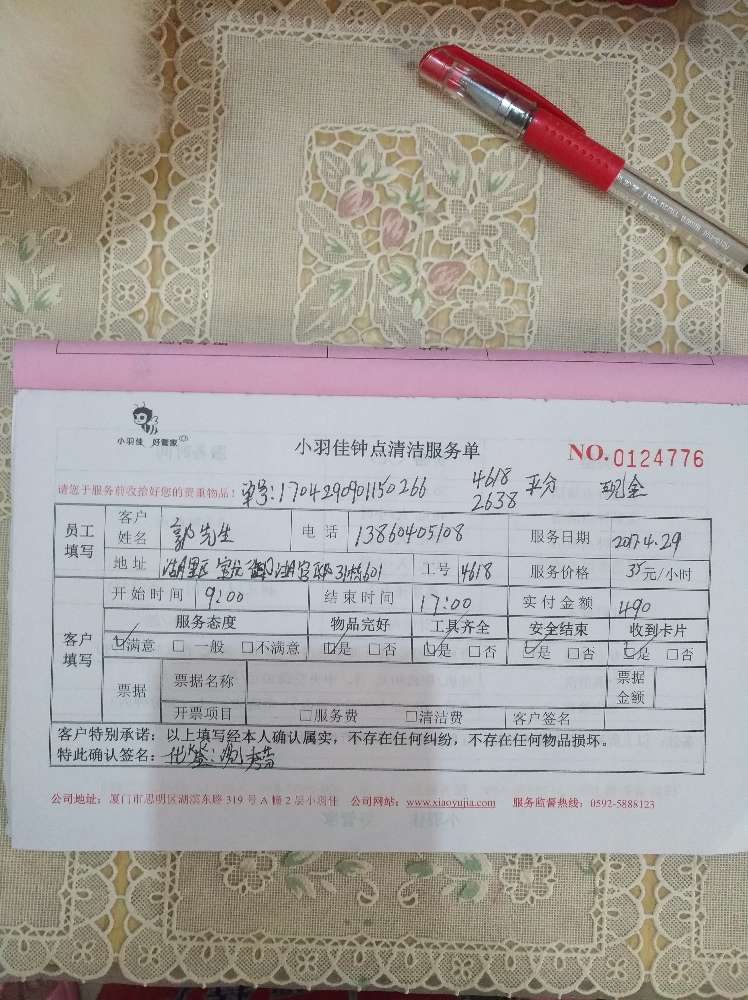 小羽佳 好管家
小羽佳钟点清洁服务单
NO.0124776
请您于服务前收拾好您的贵重物品！ 单号:1704290901150266 4618 2638 平分 现金
员工填写 客户姓名 郭先生 电话 13860405108 服务日期 2017.4.29
地址 湖里区 31栋601 工号 4618 服务价格 35元/小时
客户填写 开始时间 9:00 结束时间 17:00 实付金额 490
服务态度 物品完好 工具齐全 安全结束 收到卡片
☑满意 □一般 □不满意 ☑是 □否 ☑是 □否 ☑是 □否 ☑是 □否
票据 票据名称 票据金额
开票项目 □服务费 □清洁费 客户签名
客户特别承诺：以上填写经本人确认属实，不存在任何纠纷，不存在任何物品损坏。
特此确认签名： 代签:
公司地址：厦门市思明区湖滨东路 319 号 A 幢 2 层小羽佳 公司网站：www.xiaoyujia.com 服务监督热线：0592-5888123